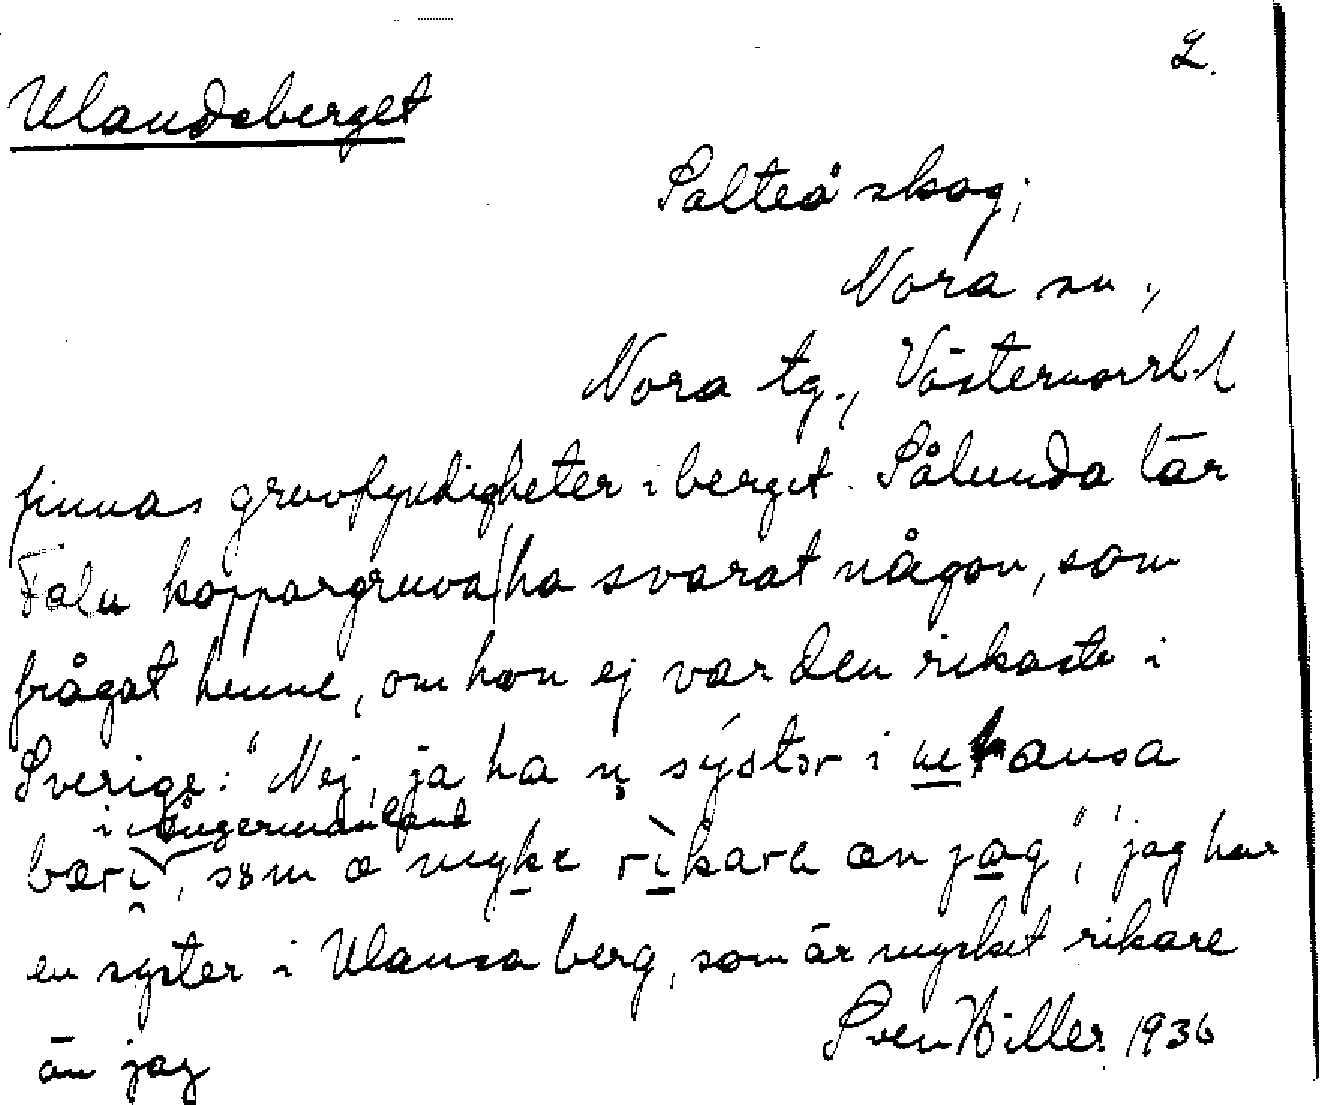 2.
Ulandsberget
Salteå skog,
Nora sn.,
Nora tg., Västernorrl. l
finnas gruvfyndigheter i berget. Sålunda lär
Falu koppargruva (ha svarat någon, som
frågat henne, om hon ej var den rikaste i
Sverige: "Nej, ja ha n̥ sýstər i ɯlansa
i Ångermanland
bæri, søm æ mykɛ rìkarɛ æn jag", 'jag har
en syster i Ulansa berg, som är mycket rikare
än jag
Sven Hiller 1936